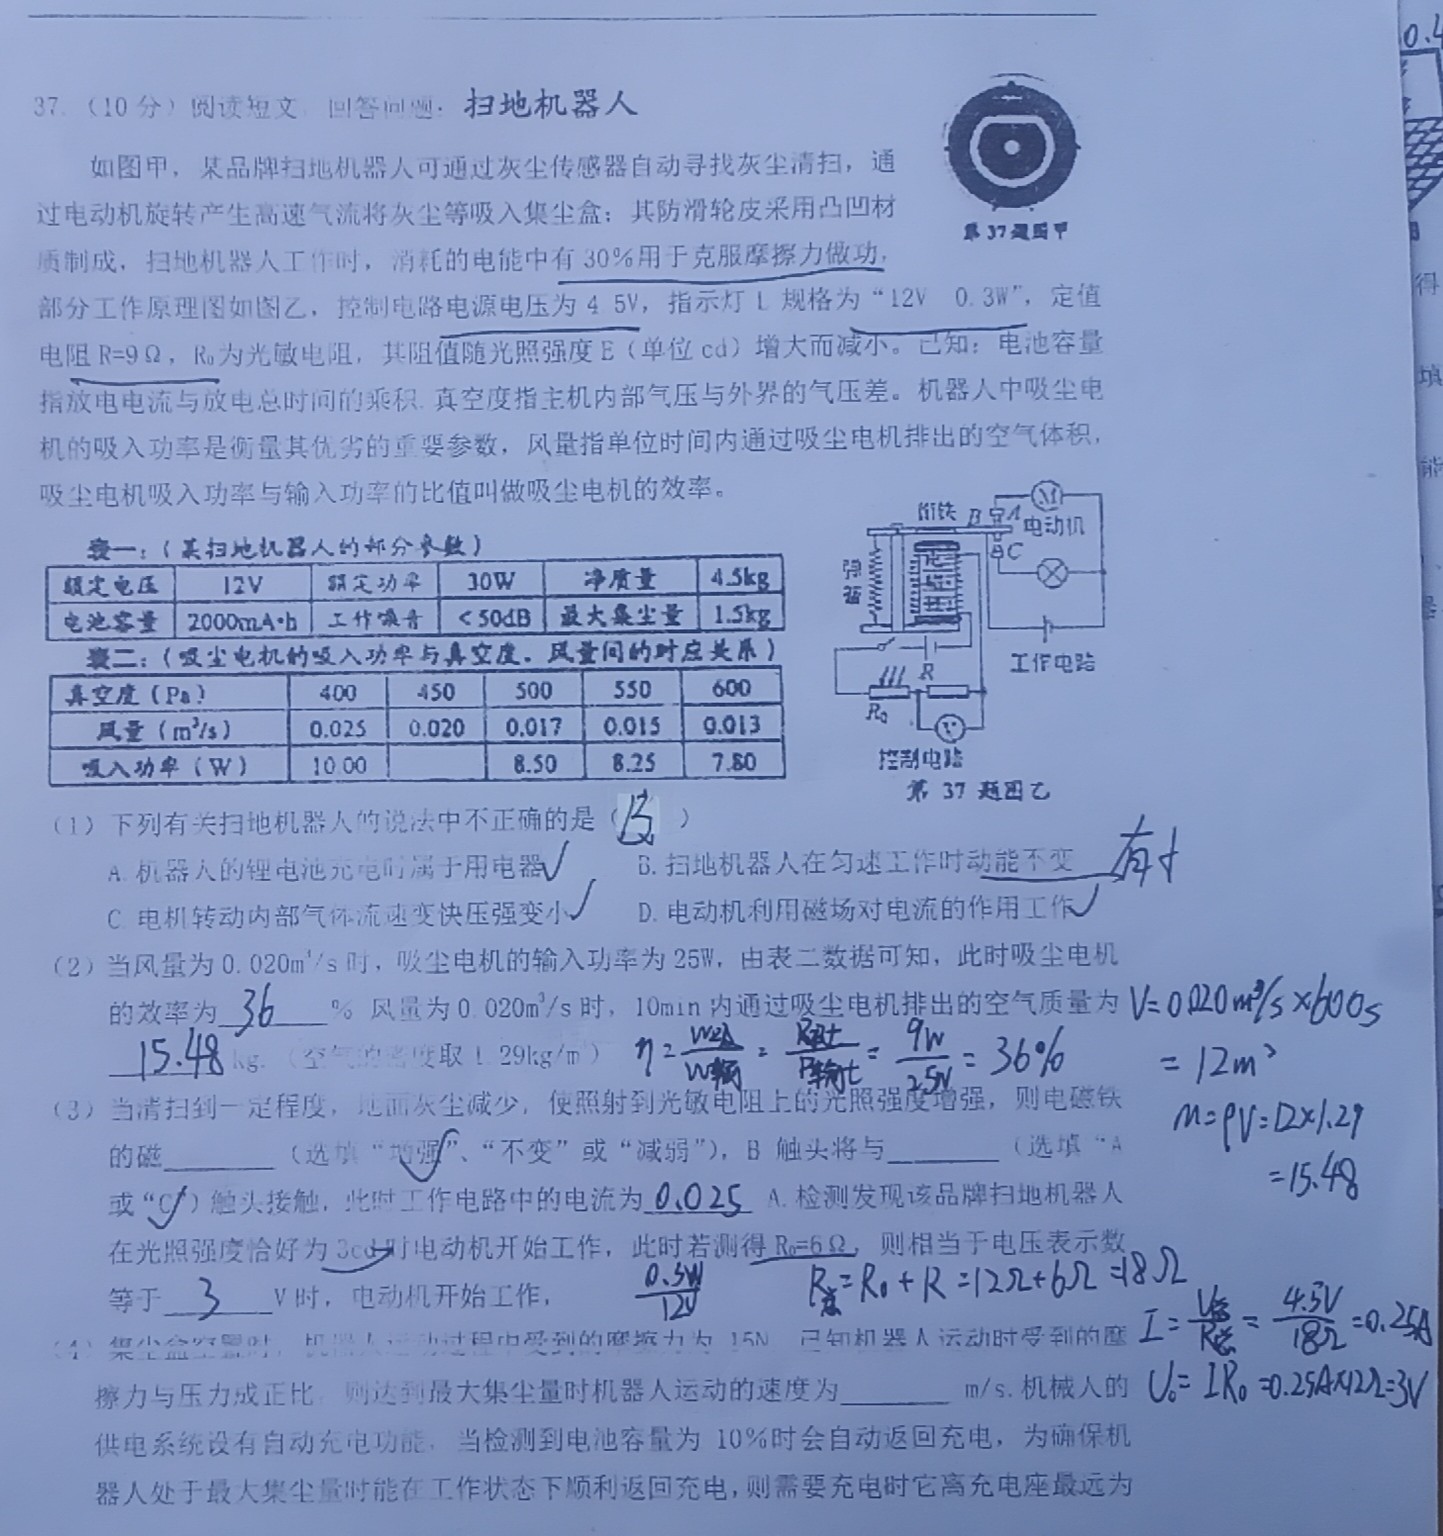 37.（10分）阅读短文，回答问题：扫地机器人
如图甲，某品牌扫地机器人可通过灰尘传感器自动寻找灰尘清扫，通
过电动机旋转产生高速气流将灰尘等吸入集尘盒；其防滑轮皮采用凸凹材
质制成，扫地机器人工作时，消耗的电能中有30%用于克服摩擦力做功，
部分工作原理图如图乙，控制电路电源电压为4.5V，指示灯L规格为“12V 0.3W”，定值
电阻R=9Ω，R₀为光敏电阻，其阻值随光照强度E（单位cd）增大而减小。已知：电池容量
指放电电流与放电总时间的乘积.真空度指主机内部气压与外界的气压差。机器人中吸尘电
机的吸入功率是衡量其优劣的重要参数，风量指单位时间内通过吸尘电机排出的空气体积，
吸尘电机吸入功率与输入功率的比值叫做吸尘电机的效率。
第37题图甲
表一：（某扫地机器人的部分参数）
额定电压 12V 额定功率 30W 净质量 4.5kg
电池容量 2000mA·h 工作噪音 <50dB 最大集尘量 1.5kg
表二：（吸尘电机的吸入功率与真空度、风量间的对应关系）
真空度（Pa） 400 450 500 550 600
风量（m³/s） 0.025 0.020 0.017 0.015 0.013
吸入功率（W） 10.00 8.50 8.25 7.80
衔铁 B A
M
电动机
C
弹簧
电磁铁
工作电路
R
R₀
V
控制电路
第37题图乙
（1）下列有关扫地机器人的说法中不正确的是（B）
A.机器人的锂电池充电时属于用电器✓ B.扫地机器人在匀速工作时动能不变
C.电机转动内部气体流速变快压强变小✓ D.电动机利用磁场对电流的作用工作✓
（2）当风量为0.020m³/s时，吸尘电机的输入功率为25W，由表二数据可知，此时吸尘电机
的效率为 36 % 风量为0.020m³/s时，10min内通过吸尘电机排出的空气质量为
15.48 kg.（空气的密度取1.29kg/m³）
V=0.020m³/s×600s
=12m³
m=ρV=12×1.29
=15.48
= 9W/25W = 36%
（3）当清扫到一定程度，地面灰尘减少，使照射到光敏电阻上的光照强度增强，则电磁铁
的磁____（选填“增强”、“不变”或“减弱”），B触头将与____（选填“A
或“C”）触头接触，此时工作电路中的电流为 0.025 A.检测发现该品牌扫地机器人
在光照强度恰好为3cd时电动机开始工作，此时若测得R₀=6Ω，则相当于电压表示数
等于 3 V时，电动机开始工作，
0.3W/12V
R总=R₀+R=12Ω+6Ω=18Ω
I=U总/R总=4.5V/18Ω=0.25A
U₀=IR₀=0.25A×12Ω=3V
（4）集尘盒空置时，机器人运动过程中受到的摩擦力为15N，已知机器人运动时受到的摩
擦力与压力成正比，则达到最大集尘量时机器人运动的速度为____m/s.机械人的
供电系统设有自动充电功能，当检测到电池容量为10%时会自动返回充电，为确保机
器人处于最大集尘量时能在工作状态下顺利返回充电，则需要充电时它离充电座最远为
0.4
得
填
能